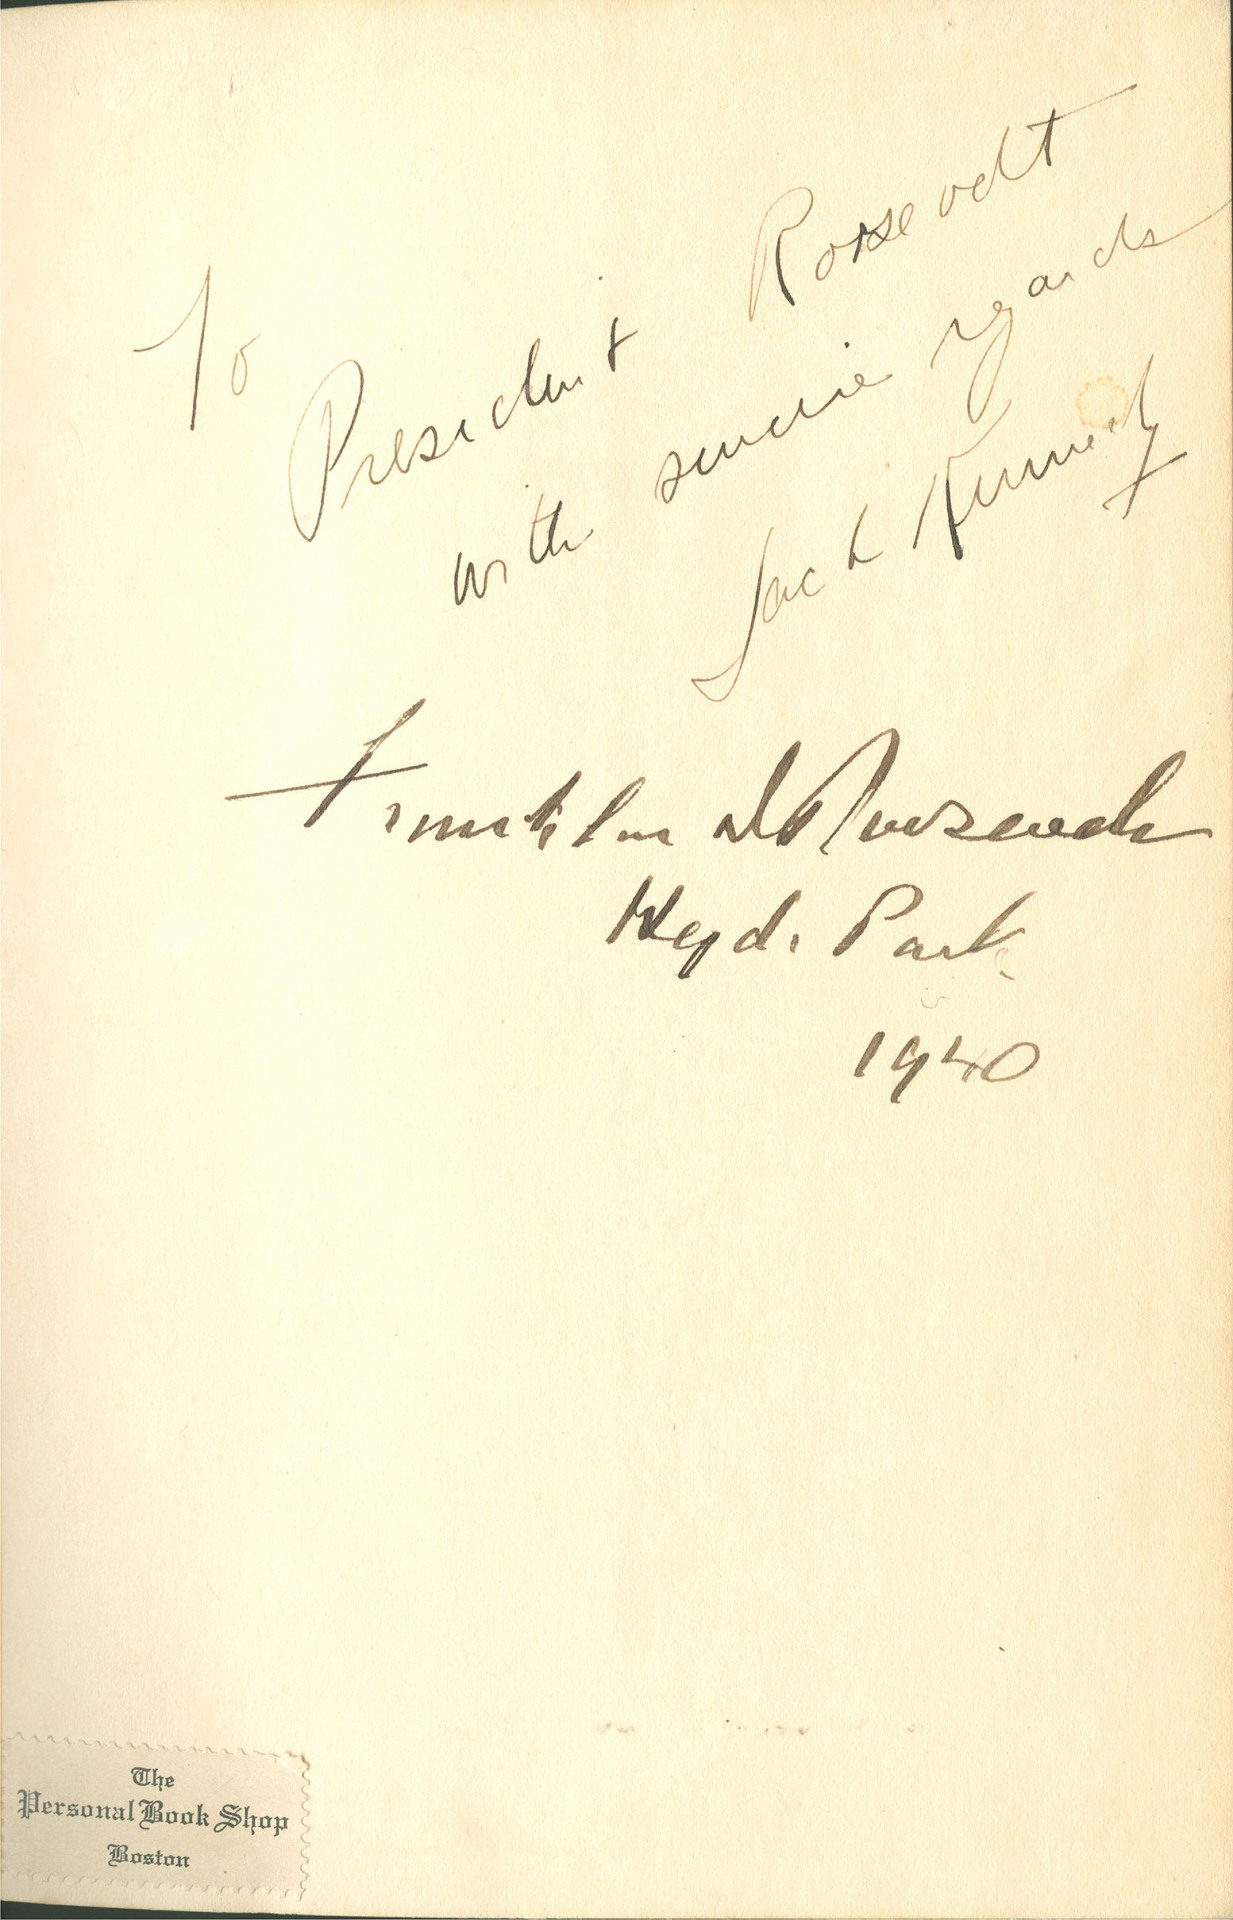 To President Roosevelt
with sincere regards
Jack Kennedy
Franklin D Roosevelt
Hyde Park
1940
The
Personal Book Shop
Boston